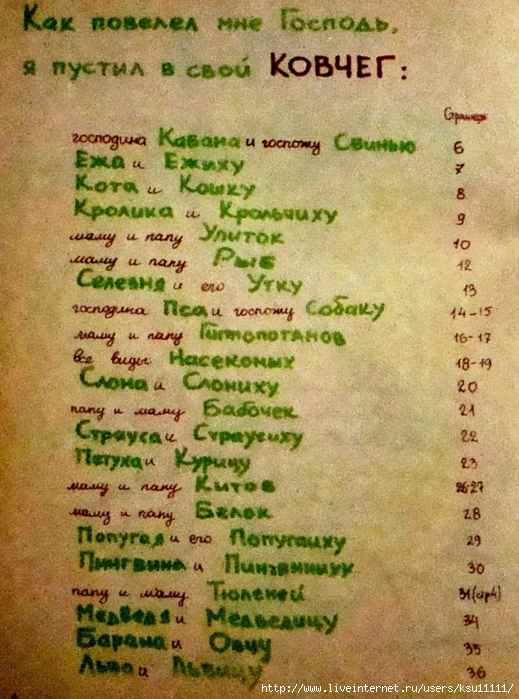 Как повелел мне Господь,
я пустил в свой КОВЧЕГ:
Страница
господина Кабана и госпожу Свинью 6
Ежа и Ежиху 7
Кота и Кошку 8
Кролика и Крольчиху 9
маму и папу Улиток 10
маму и папу Рыб 12
Селезня и его Утку 13
господина Пса и госпожу Собаку 14-15
маму и папу Гиппопотамов 16-17
все виды Насекомых 18-19
Слона и Слониху 20
папу и маму Бабочек 21
Страуса и Страусиху 22
Петуха и Курицу 23
маму и папу Китов 26-27
маму и папу Белок 28
Попугая и его Попугаиху 29
Пингвина и Пингвиниху 30
папу и маму Тюленей 31
Медведя и Медведицу 34
Барана и Овцу 35
Льва и Львицу 36
http://www.liveinternet.ru/users/ksu11111/